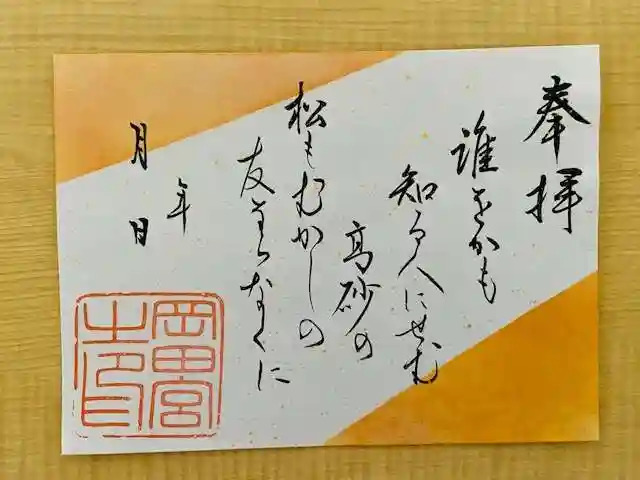 奉拝
誰をかも
知る人にせむ
高砂の
松もむかしの
友ならなくに
年
月 日
岡田宮
之印